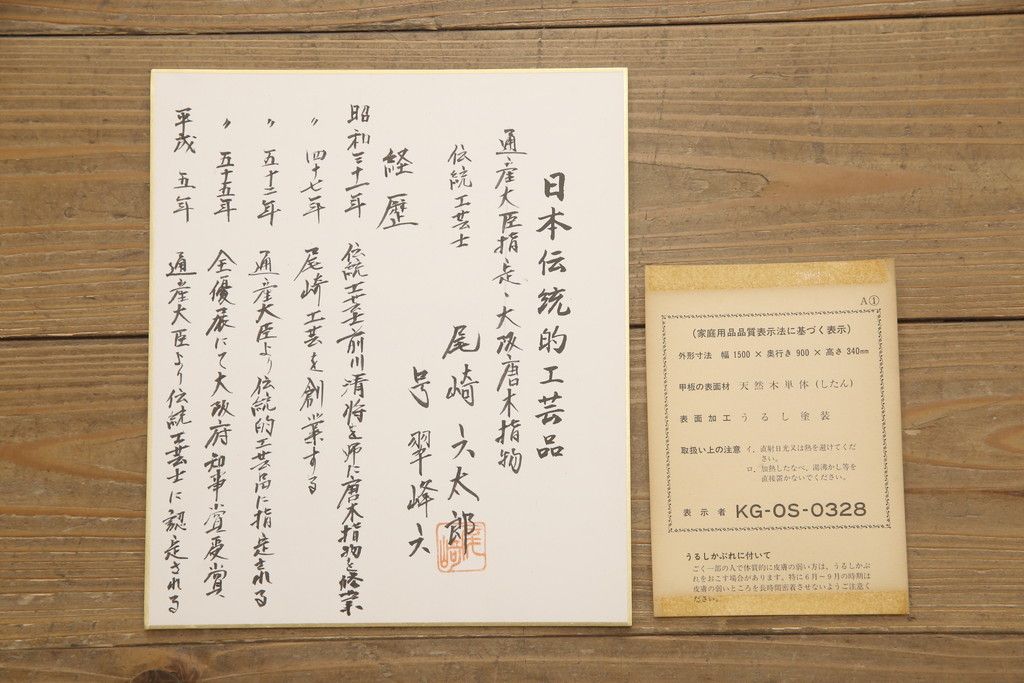 日本伝統的工芸品
通産大臣指定、大阪唐木指物
伝統工芸士 尾崎六太郎
号 翠峰六
経歴
昭和三十一年 伝統工芸士前川清将を師に唐木指物を修業
〃 四十七年 尾崎工芸を創業する
〃 五十二年 通産大臣より伝統的工芸品に指定される
〃 五十五年 全優展にて大阪府知事賞受賞
平成 五年 通産大臣より伝統工芸士に認定される
尾崎
A①
(家庭用品品質表示法に基づく表示)
外形寸法 幅 1500 × 奥行き 900 × 高さ 340mm
甲板の表面材 天然木単体(したん)
表面加工 うるし塗装
取扱い上の注意 イ、直射日光又は熱を避けてくだ
さい。
ロ、加熱したなべ、湯沸かし等を
直接置かないでください。
表示者 KG-OS-0328
うるしかぶれに付いて
ごく一部の人で体質的に皮膚の弱い方は、うるしかぶ
れをおこす場合があります。特に6月〜9月の時期は
皮膚の弱いところを長時間密着させないようご注意く
ださい。